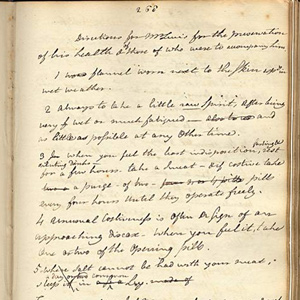 258
Directions for Mr Lewis for the preservation
of his health & those of who were to accompany him
1 flannel worn next to the Skin espe in
wet weather.
2 Always to take a little raw Spirit, after being
very wet or much fatigued — and
as little as possible at any other time.
3 when you feel the least indisposition, fasting &
diluting drinks — rest
for a few hours. take a sweat — if costive take
a purge of two pills
every four hours until they operate freely.
4 Unusual Costiveness is often a Sign of an
approaching Disease — When you feel it, take
one or two of the Opening pills.
5. where Salt cannot be had with your meat,
steep it in a